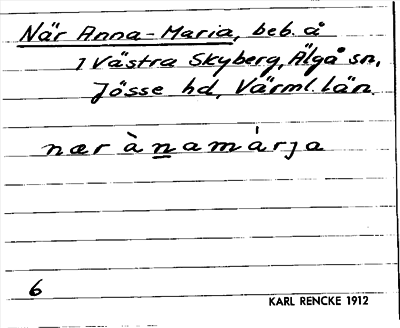 När Anna-Maria, beb. å
1 Västra Skyberg, Älgå sn,
Jösse hd, Värml. län.
nær ànamárja
6
KARL RENCKE 1912